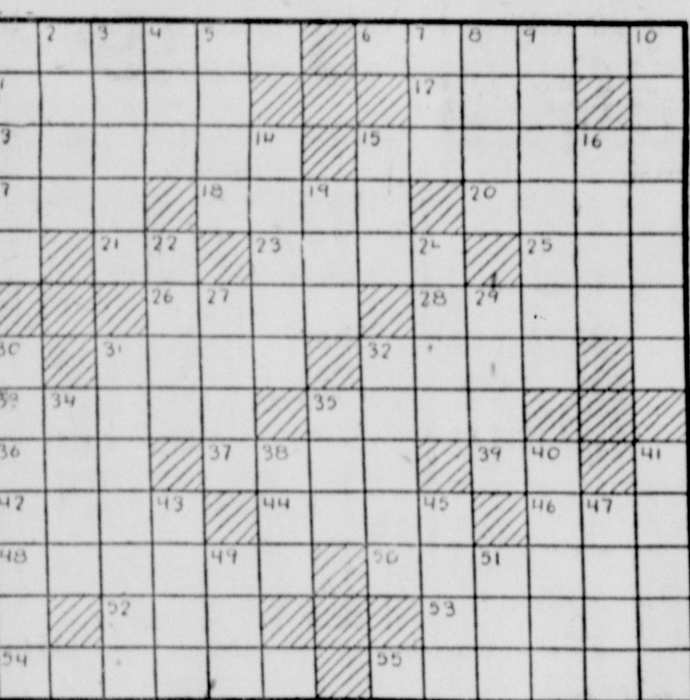 2 3 4 5 6 7 8 9 10
12
3 14 15 16
7 18 19 20
21 22 23 24 25
26 27 28 29
30 31 32
34 35
36 37 38 39 40 41
42 43 44 45 46 47
48 49 50 51
52 53
54 55